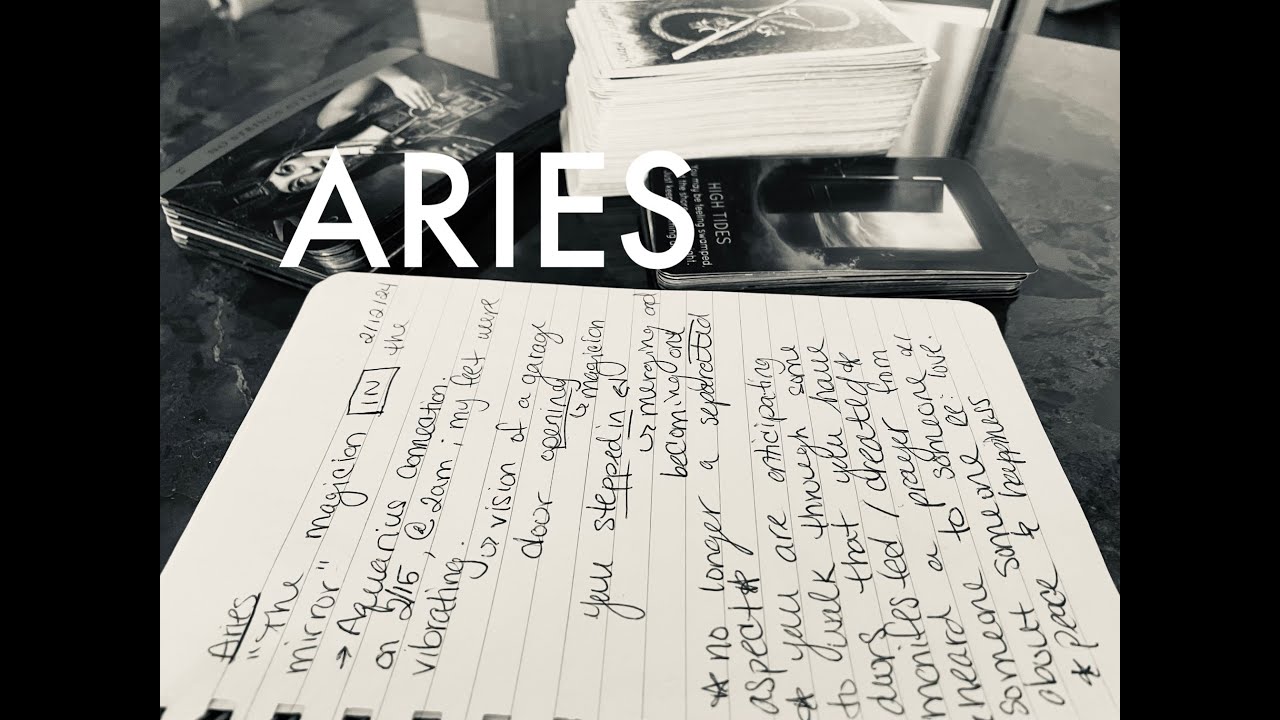 ARIES
HIGH TIDES
You may be feeling swamped.
Aries 2/12/24
"The magician IN the
mirror"
→ Aquarius connection.
on 2/15, @ 2am; my feet were
vibrating.
↳ vision of a garage
door opening
↳ magician
you stepped in
↳ merging and
becoming one
* no longer a separated
aspect *
* you are anticipating
to walk through some
door that you have
manifested / created *
heard a prayer from
someone to someone or
someone someone re: love.
about
& happiness
* peace